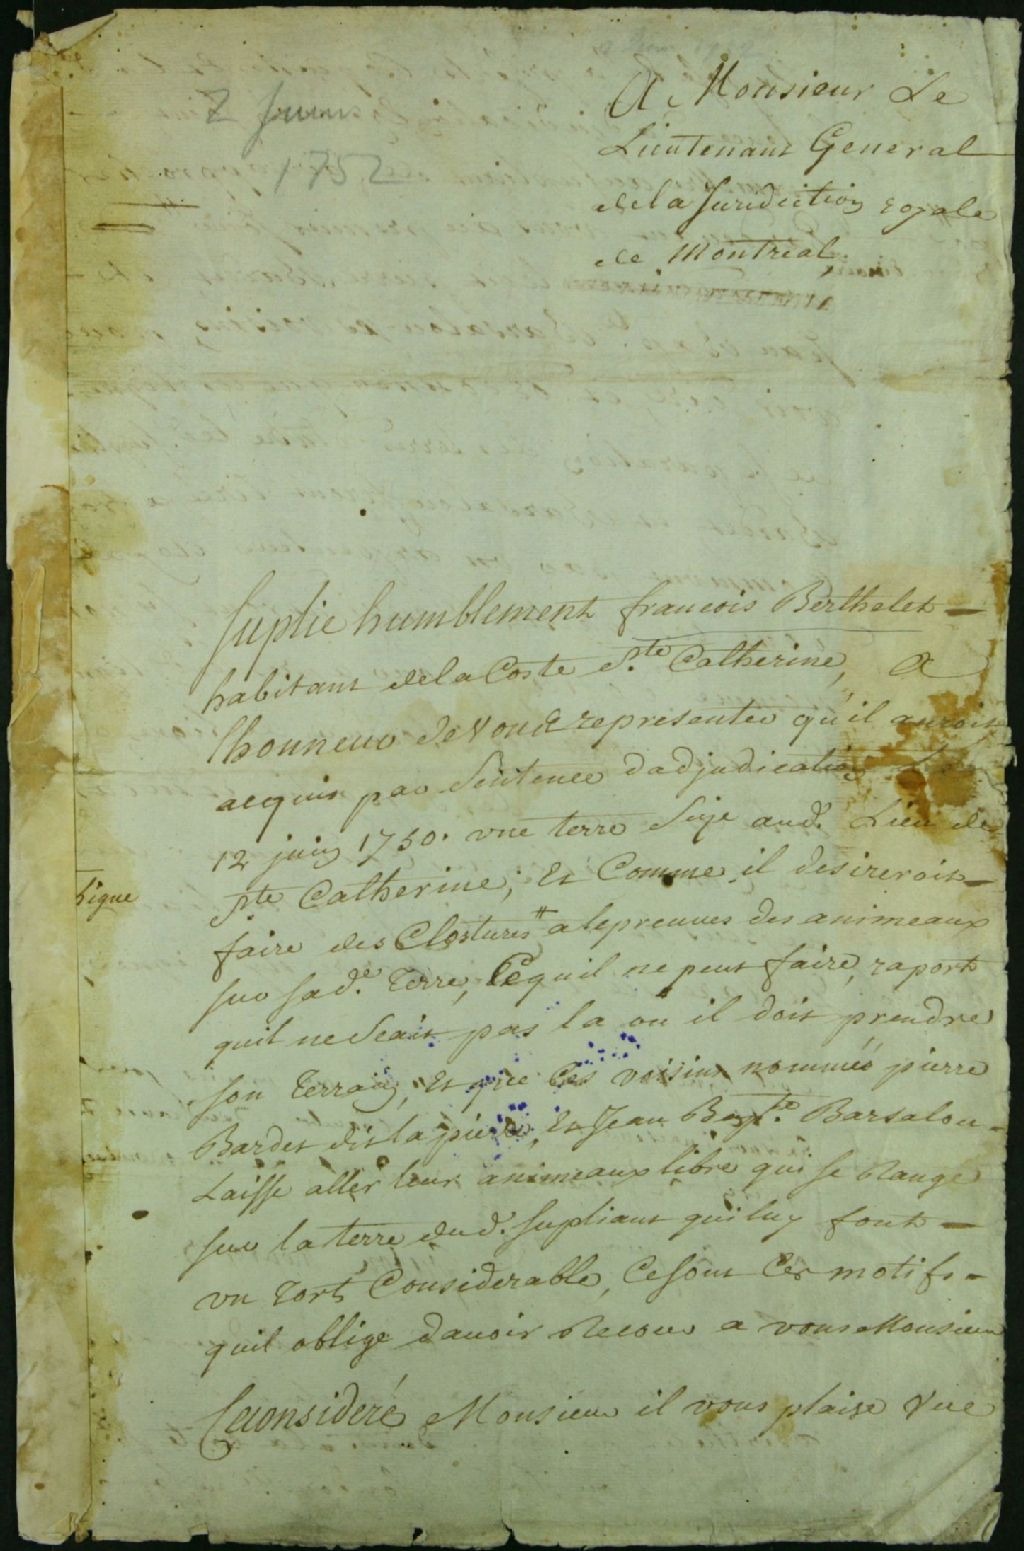 2 Juin
1752
A Monsieur Le
Lieutenant General
dela Juridiction royale
de Montreal
Suplie humblement francois Berthelet
habitant dela Coste Ste Catherine, A
lhonneur de vous representer qu'il auroit
acquis par Sentence dadjudication
12 juin 1750. vne terre Size aud. Lieu de
Ste Catherine; Et Comme il desireroit
faire des Clostures # alepreuves des animeaux
sur sade. Terre, Cequil ne peut faire, raport
quil ne Scait pas la ou il doit prendre
son Terrain, Et que Ces voisins nommés pierre
Bardet dit lapiere, Et Jean Bapte. Barsalou
Laisse aller leur animeaux libre qui se range
sur la terre dud. supliant quiluy font
vn tort Considerable, Cesont Ces motifs
quil oblige davoir recour a vous Monsieur
Ceconsideré Monsieur il vous plaise Vue
ligne